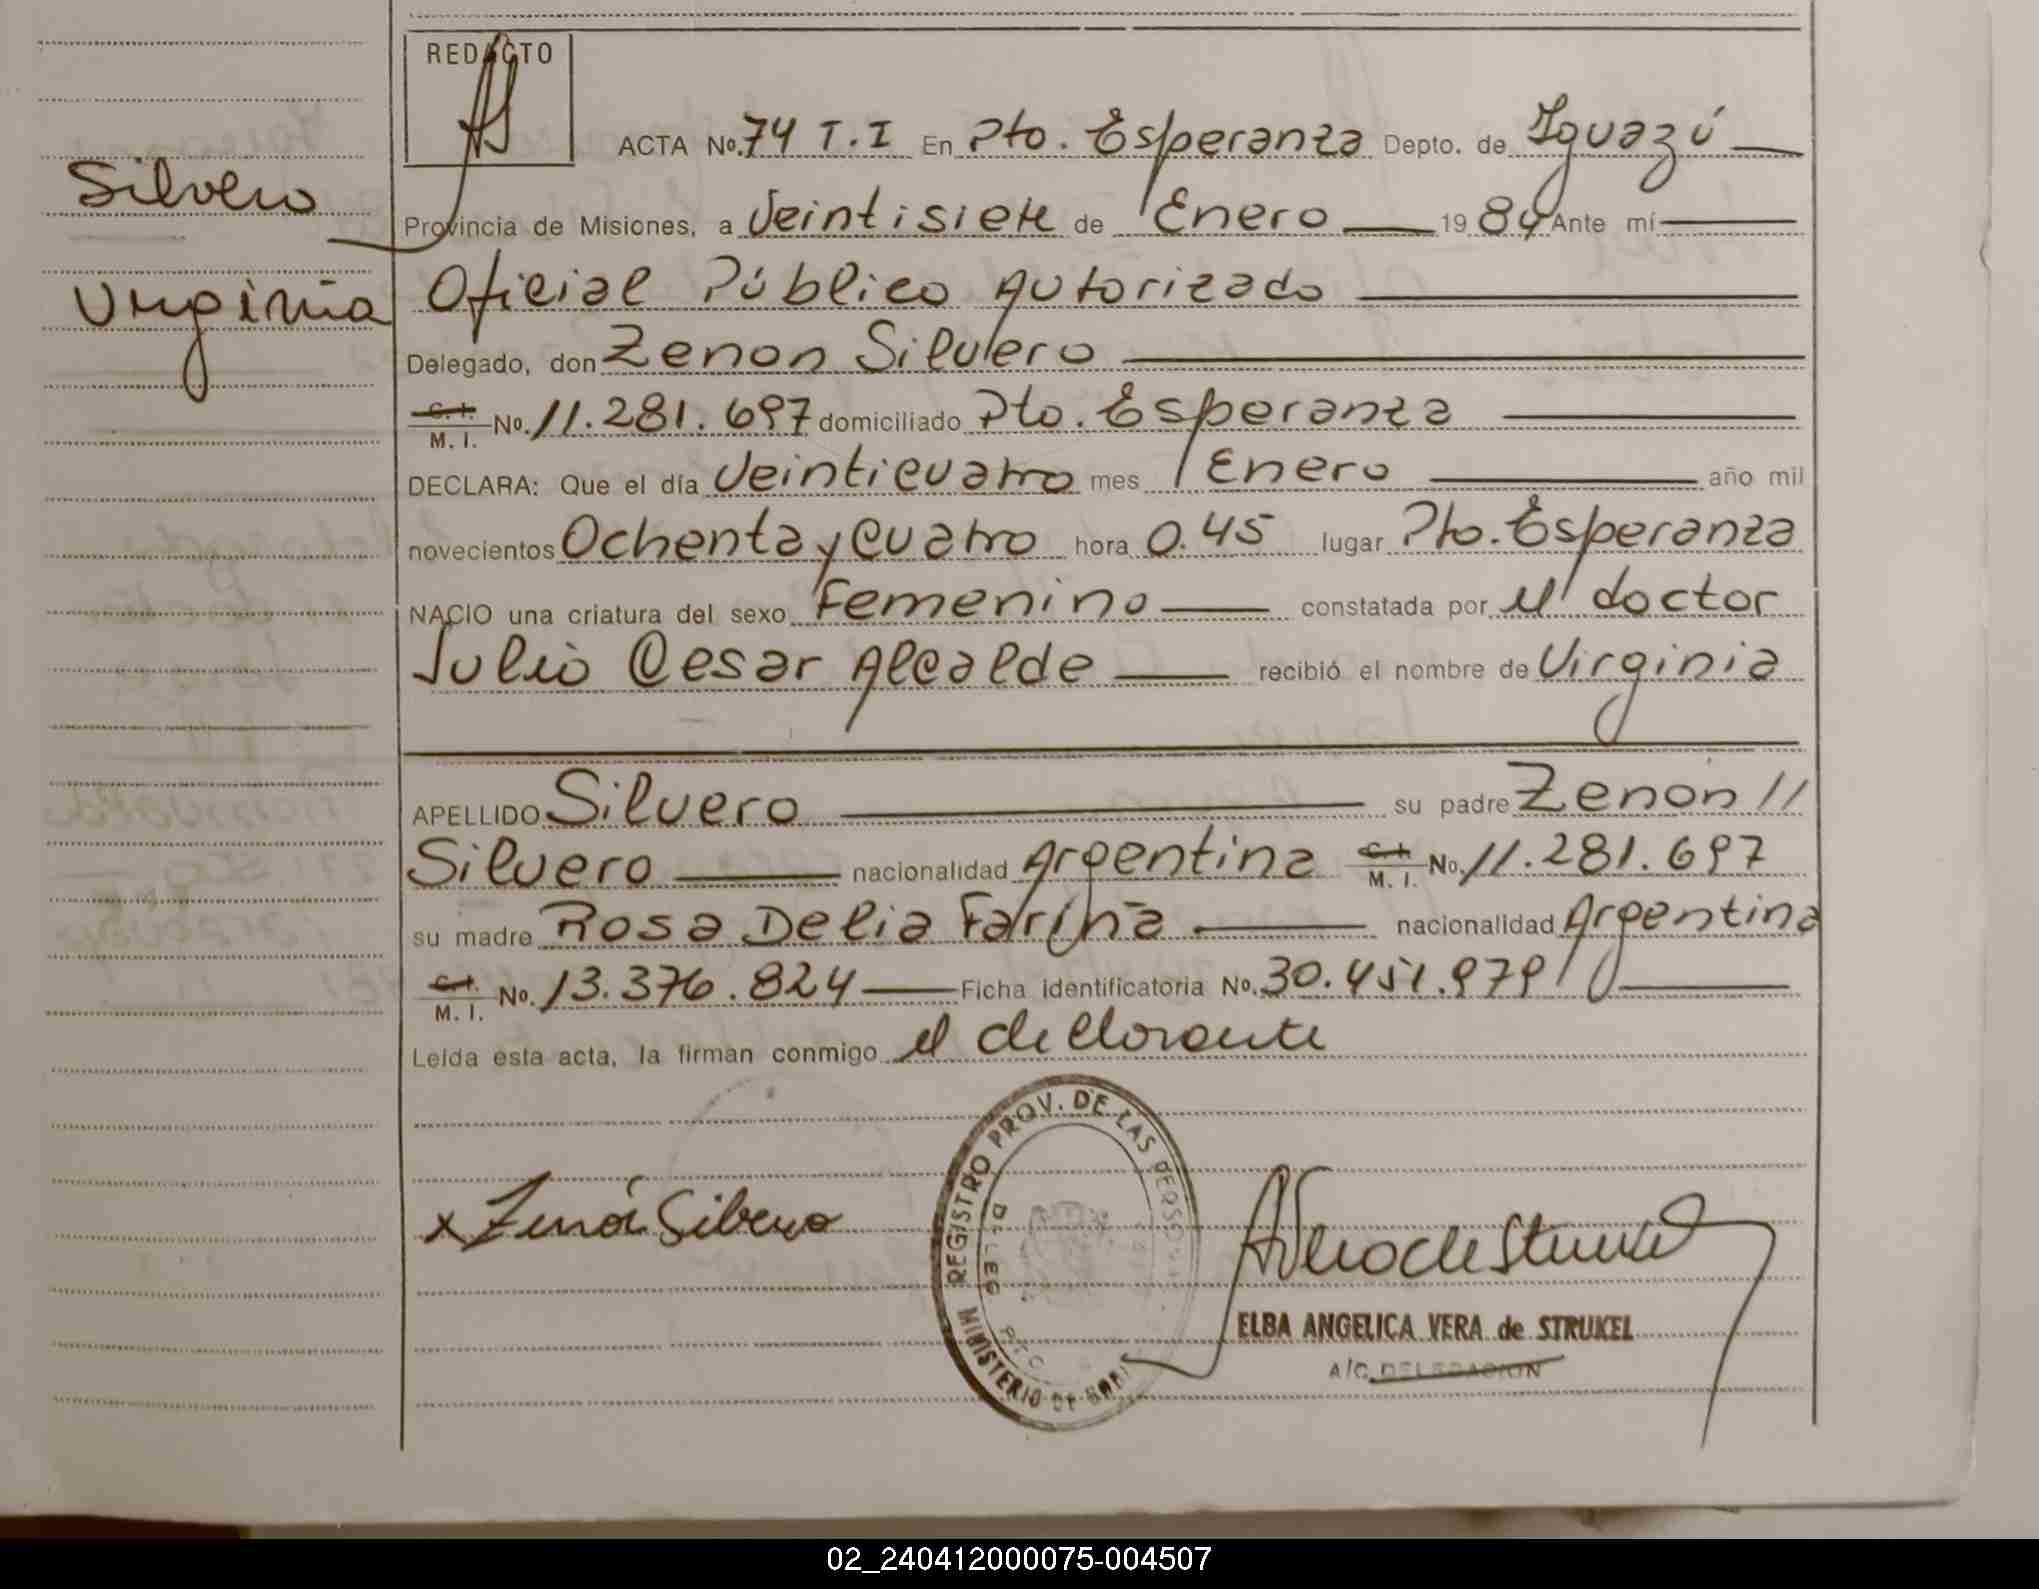 REDACTO
ACTA No. 74 T.I En Pto. Esperanza Depto. de Iguazú
Silvero
Provincia de Misiones, a Veintisiete de Enero 1984 Ante mí
Virginia
Oficial Público Autorizado
Delegado, don Zenon Silvero
C. I. M. I. No. 11.281.697 domiciliado Pto. Esperanza
DECLARA: Que el día Veinticuatro mes Enero año mil
novecientos Ochenta y Cuatro hora 0.45 lugar Pto. Esperanza
NACIO una criatura del sexo Femenino constatada por el doctor
Julio Cesar Alcalde recibió el nombre de Virginia
APELLIDO Silvero su padre Zenón //
Silvero nacionalidad Argentina C. I. M. I. No. 11.281.697
su madre Rosa Delia Fariña nacionalidad Argentina
C. I. M. I. No. 13.376.824 Ficha identificatoria No. 30.451.979
Leída esta acta, la firman conmigo el declarante
REGISTRO PROV. DE LAS PERSO
DELEG PTO
MINISTERIO DE
x Zenón Silvero
ELBA ANGELICA VERA de STRUKEL
A/C DELEGACION
02_240412000075-004507